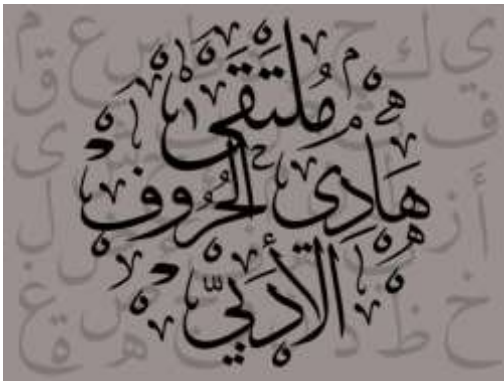 مُلتقى
هَادِي الحُروف
الأدَبيّ